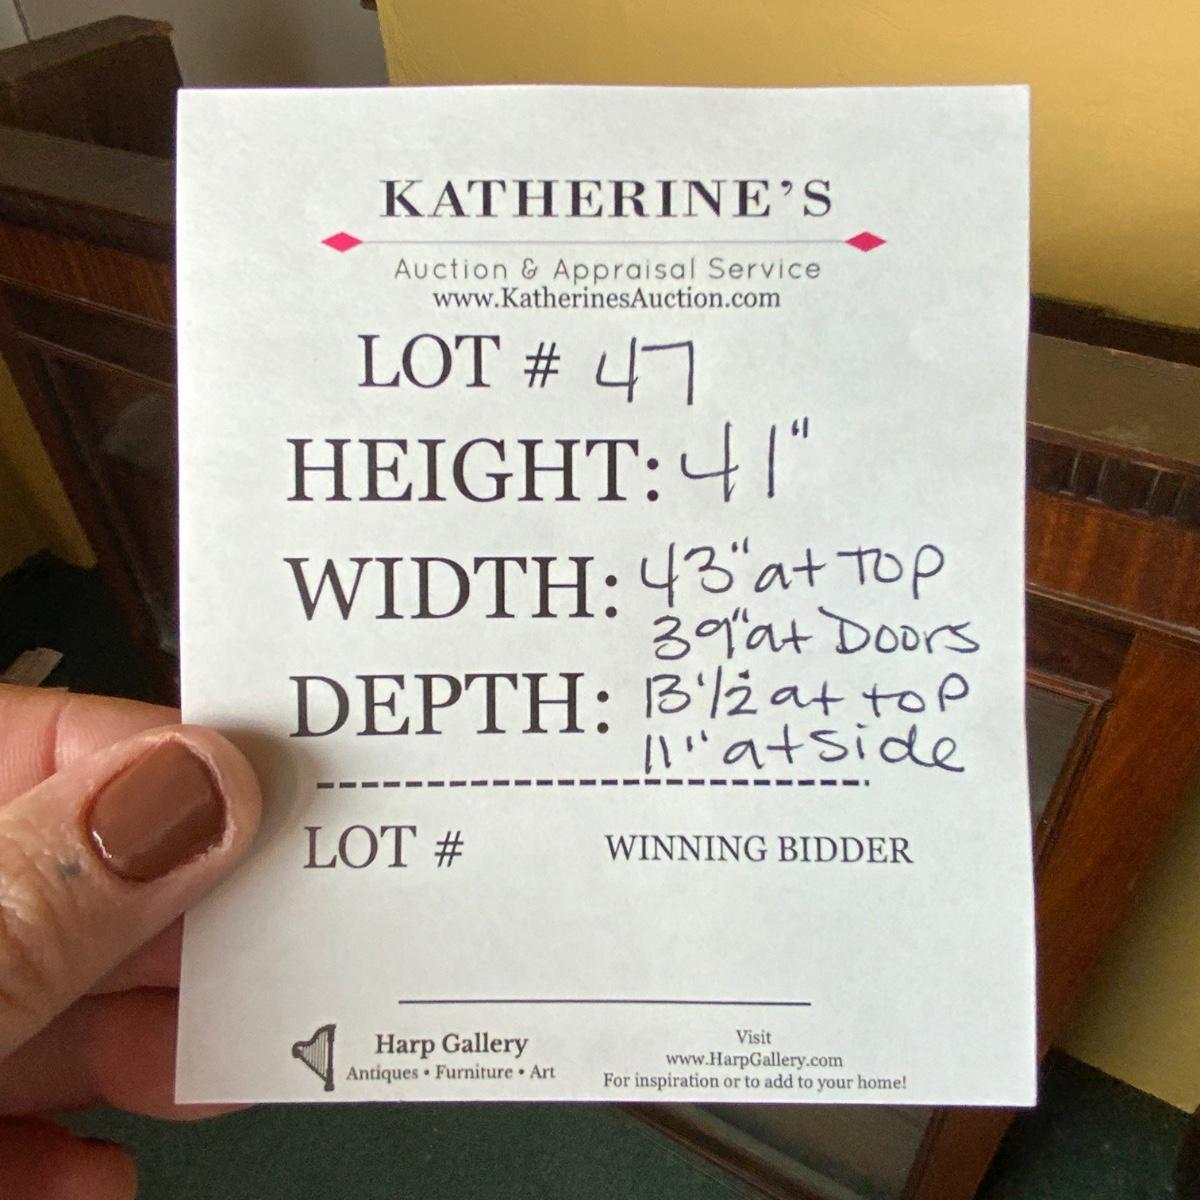 KATHERINE'S
Auction & Appraisal Service
www.KatherinesAuction.com
LOT # 47
HEIGHT: 41"
WIDTH: 43" at TOP
39" at Doors
DEPTH: 13 1/2 at top
11" at side
LOT # WINNING BIDDER
Harp Gallery
Antiques • Furniture • Art
Visit
www.HarpGallery.com
For inspiration or to add to your home!